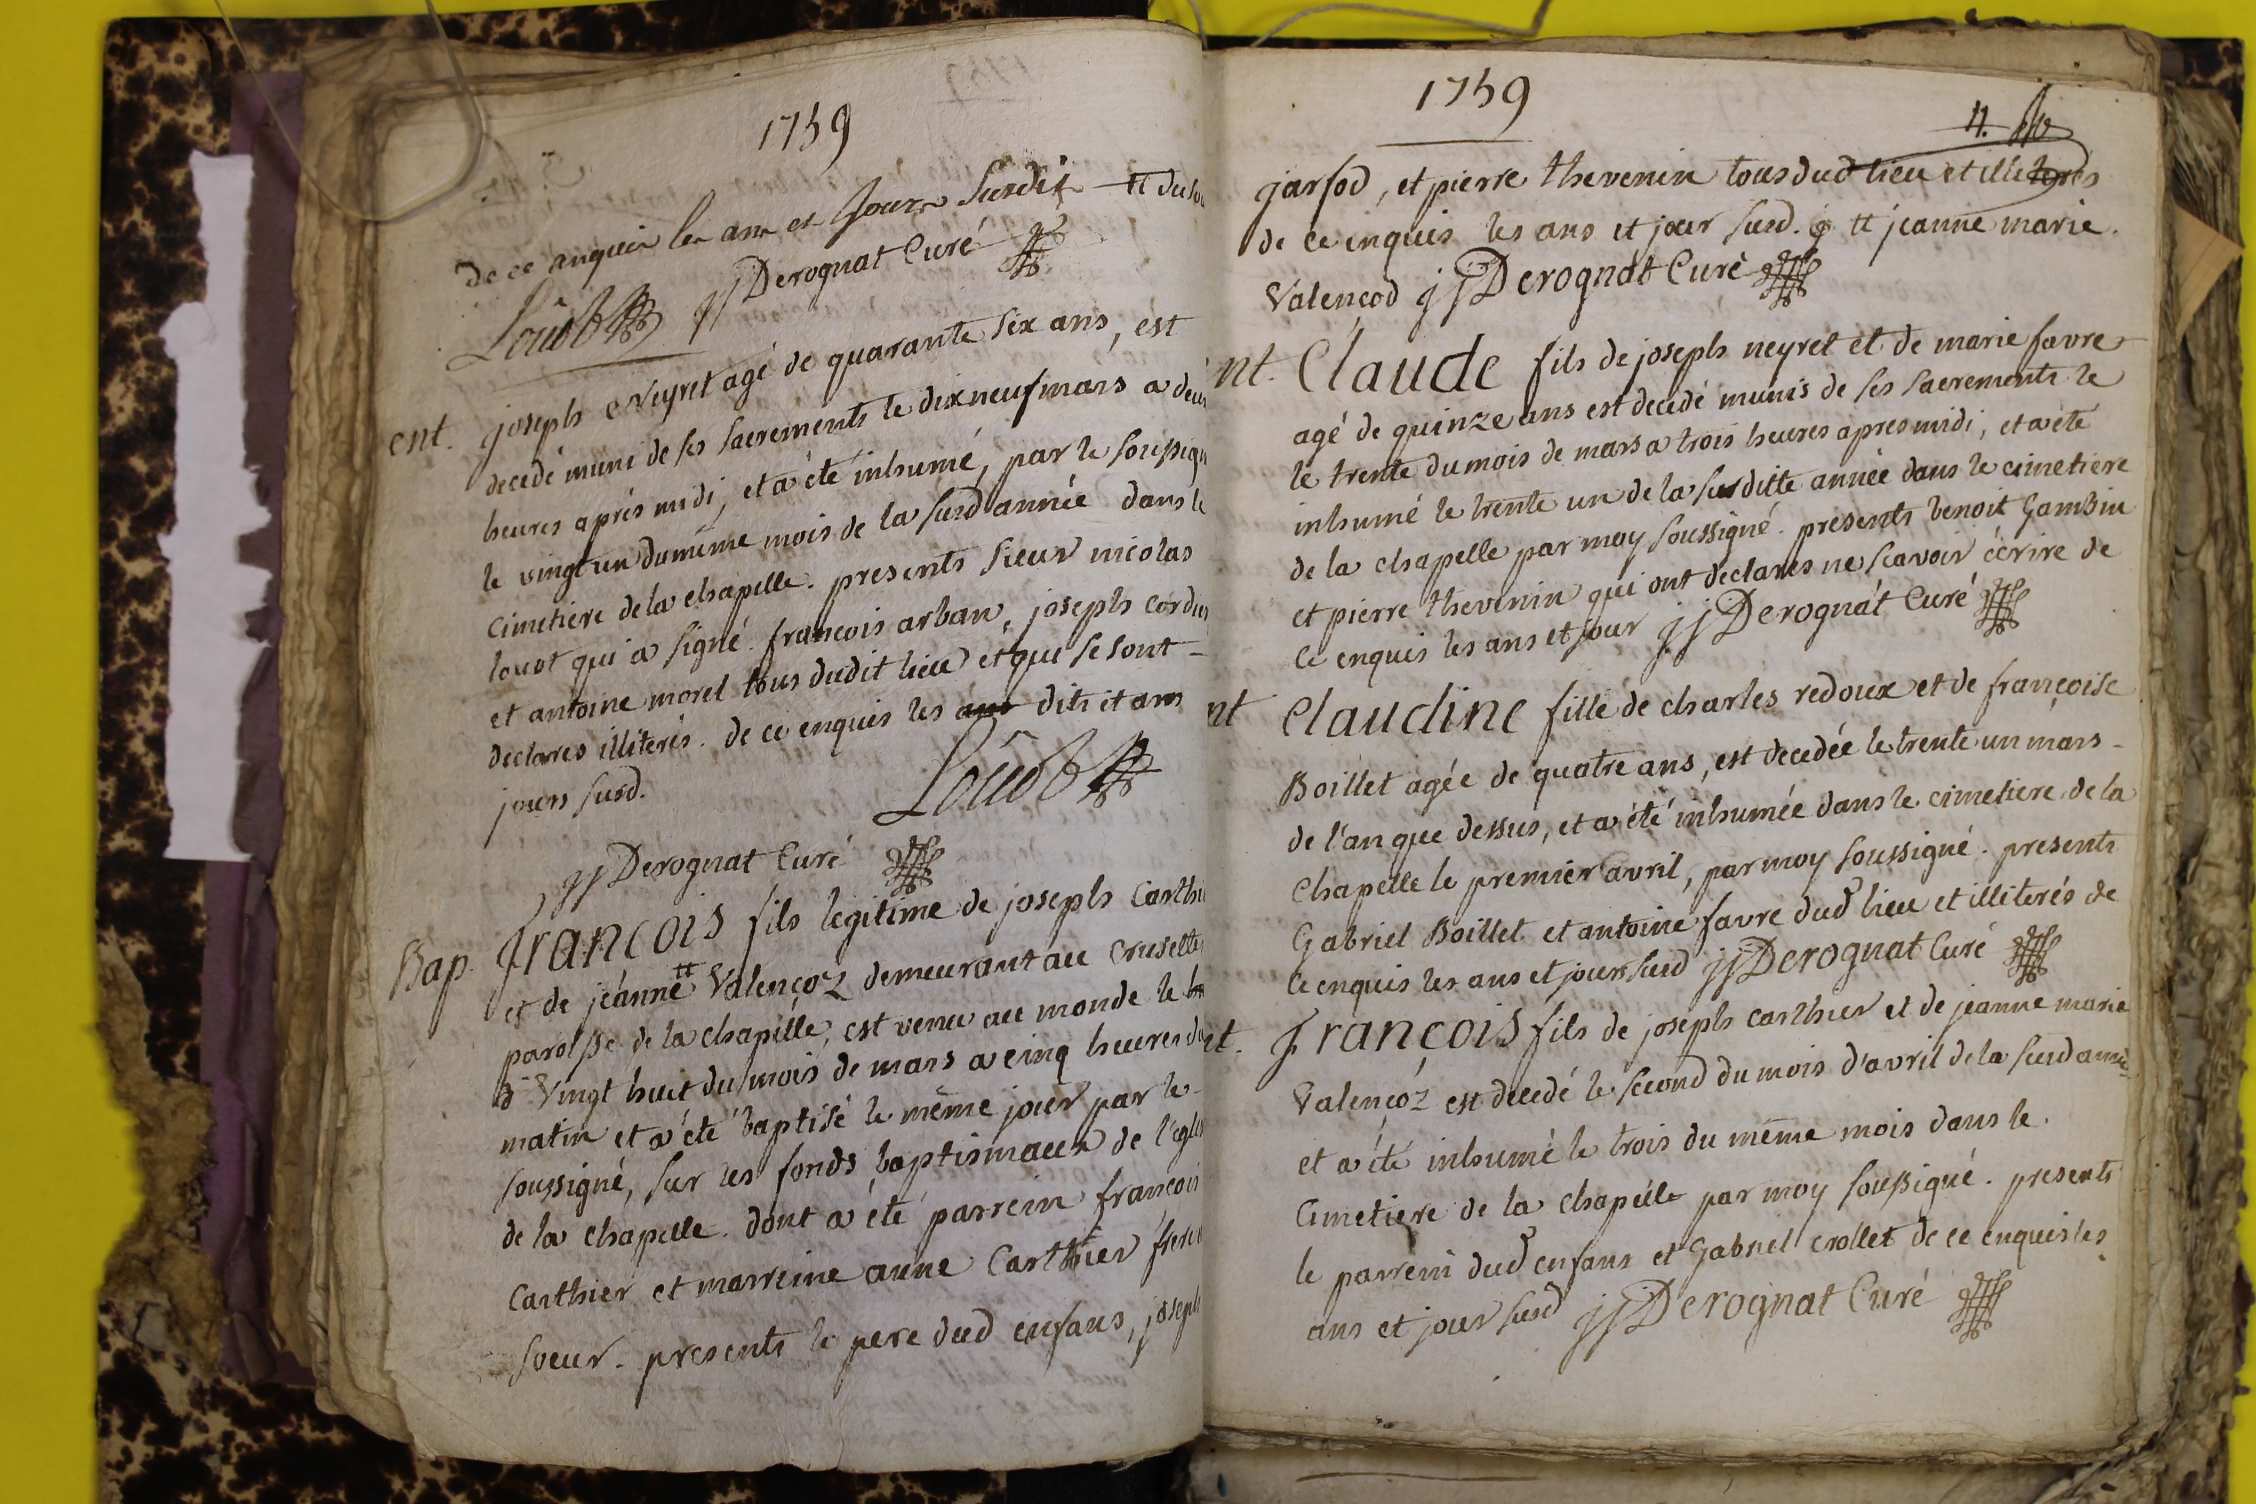 1759
de ce anquis les ans et Jours Susdit
Louôt jj Derognat Curé
ent. joseph Neyret agé de quarante six ans, est
decedé muni de ses sacrements le dixneuf mars a deux
heures aprés midi, et a été inhumé, par le soussigné
le vingt un du méme mois de la susd année dans le
cimetiere de la chapelle. presents sieur nicolas
louot qui a signé. francois arban, joseph
et antoine morel tous dudit lieu et qui se sont
declarés illiterés. de ce enquis les ans dits et ans
jours susd.
Louôt
jj Derognat Curé
Bap. François fils legitime de joseph Carthier
et de jeanne tt Valençoz demeurant au Cruselles
paroisse de la chapelle, est venu au monde le
vingt huit du mois de mars a cinq heures du
matin et a été baptisé le méme jour par le
soussigné, sur les fonds baptismaux de l'église
de la chapelle. dont a été parrein françois
Carthier et marreine anne Carthier frere
soeur. presents le pere dud enfans, joseph
1759
11.
jarsod, et pierre thevenin tous dud lieu et illiterés
de ce enquis les ans et jour susd. tt jeanne marie
Valençod jj Derognat Curé
nt. Claude fils de joseph neyret et de marie favre
agé de quinze ans est decedé munis de ses sacrements le
le trente du mois de mars a trois heures apres midi, et a été
inhumé le trente un de la susditte année dans le cimetiere
de la chapelle par moy soussigné. presents benoit Gambin
et pierre thevenin qui ont declarés ne scavoir écrire de
ce enquis les ans et jour jj Derognat Curé
nt Claudine fille de charles redoux et de françoise
Boillet agée de quatre ans, est decedée le trente un mars
de l'an que dessus, et a été inhumée dans le cimetiere de la
chapelle le premier avril, par moy soussigné. presents
Gabriel Boillet et antoine favre dud lieu et illiterés de
ce enquis les ans et jour susd jj Derognat Curé
nt. François fils de joseph carthier et de jeanne marie
Valençoz est decedé le second du mois d'avril de la susd année
et a été inhumé le trois du méme mois dans le
Cimetiere de la chapelle par moy soussigné. presents
le parrein dud enfans et Gabriel crollet de ce enquis les
ans et jour susd jj Derognat Curé